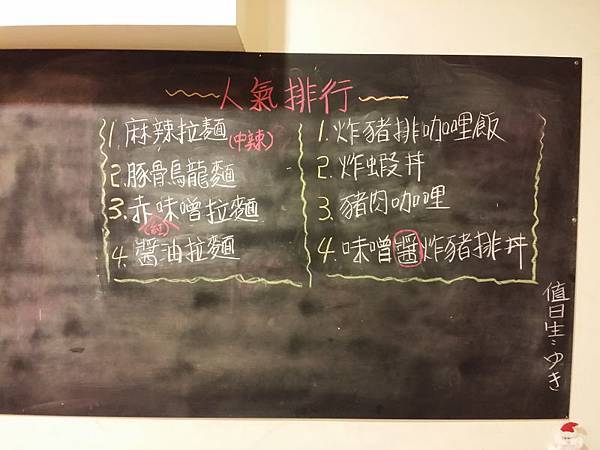 人氣排行
1. 麻辣拉麵(中辣)
2. 豚骨烏龍麵
3. 赤味噌拉麵
(紅)
4. 醬油拉麵
1. 炸豬排咖哩飯
2. 炸蝦丼
3. 豬肉咖哩
4. 味噌醬炸豬排丼
值日生:ゆき